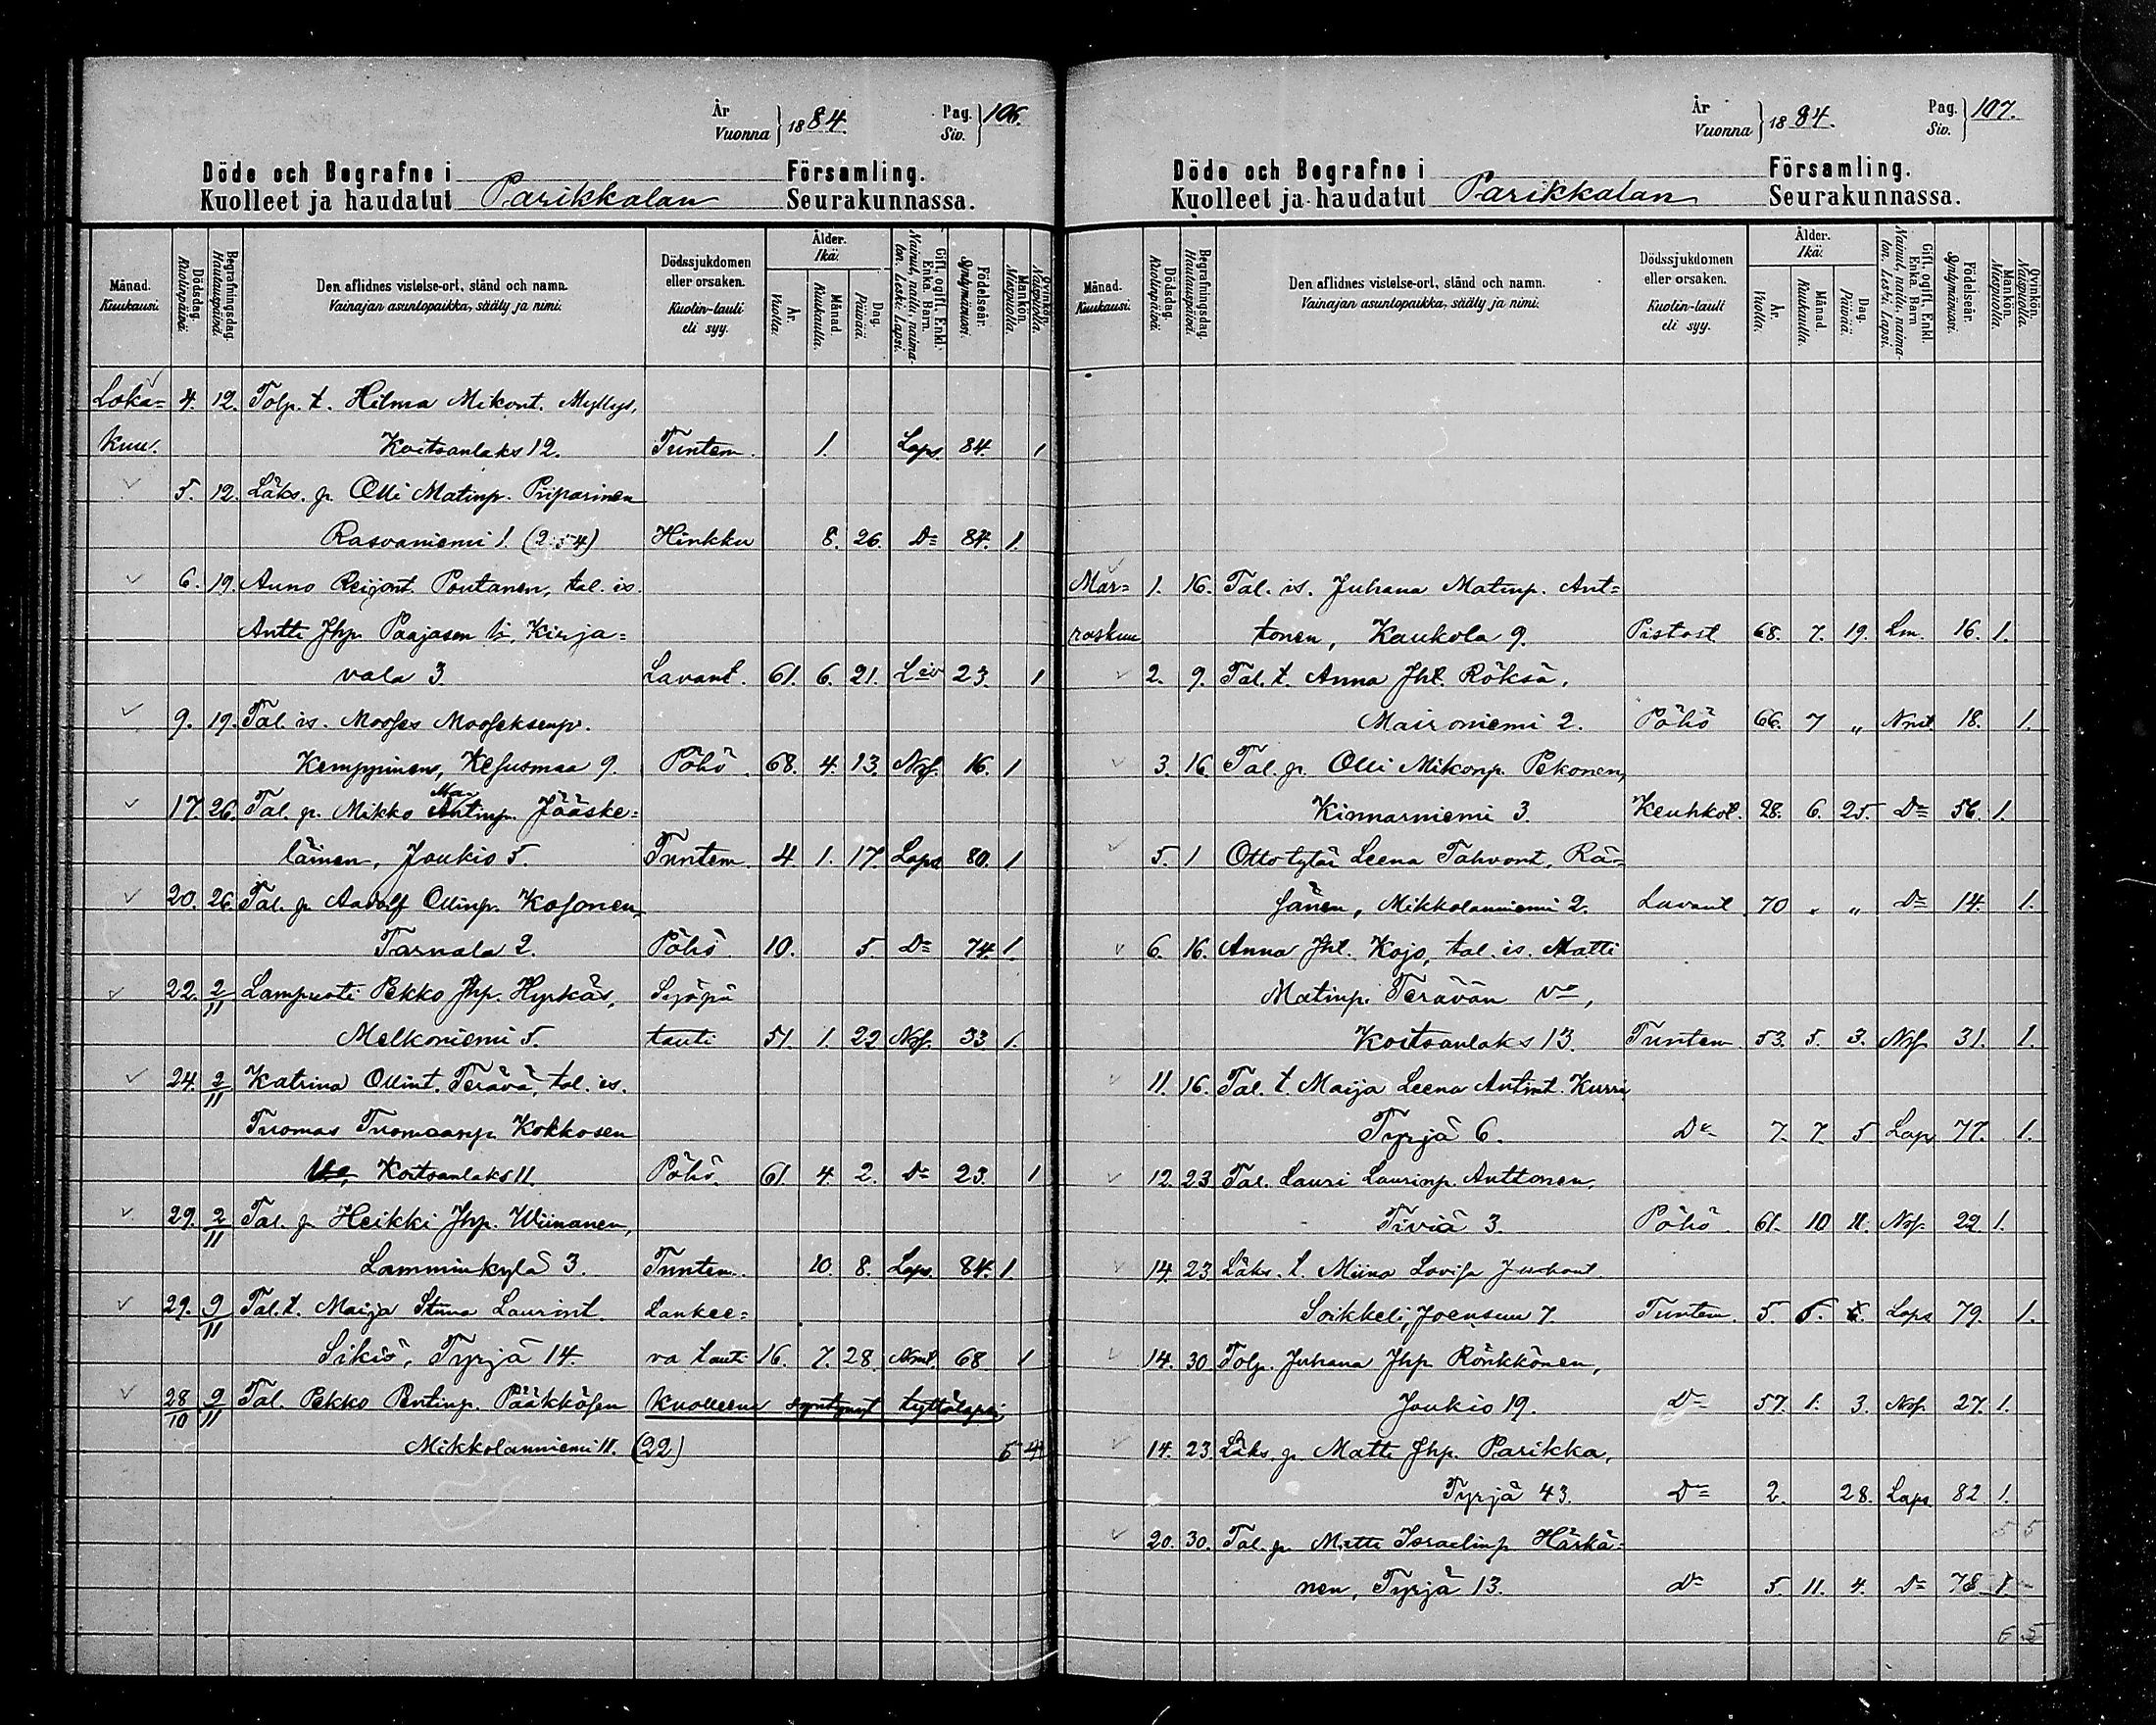 År
Vuonna } 1884.
Pag.
Siv. } 106.
Döde och Begrafne i Församling.
Kuolleet ja haudatut Parikkalan Seurakunnassa.
Månad. Kuukausi. Dödsdag. Kuolinpäivä. Begrafningsdag. Hautauspäivä. Den aflidnes vistelse-ort, stånd och namn. Vainajan asuntopaikka, sääty ja nimi. Dödssjukdomen eller orsaken. Kuolin-lauli eli syy. Ålder. Ikä. År. Vuotta. Månad. Kuukautta. Dag. Päivää. Gift, ogift, Enkl. Enka. Barn. Nainut, naitu, naimaton. Leski. Lapsi. Födelseår. Syntymävuosi. Mankön. Miespuolta. Qvinkön. Naispuolta.
Loka= 4. 12. Tolp. t. Hilma Mikont. Myllys,
kuu. Koitsanlaks 12. Tuntem. 1. Laps. 84. 1
5. 12. Läks. p. Olli Matinp. Piiparinen
Rasvaniemi 1. (254) Hinkku 8. 26. Do 84. 1.
6. 19. Anno Reijont. Poutanen, tal. is.
Antti Jhp. Paajasen , Kirja=
vala 3. Lavant. 61. 6. 21. 23. 1
9. 19. Tal. is. Mooses Mooseksenp.
Kemppinen, Kesusmaa 9. Pöhö. 68. 4. 13. Nrf. 16. 1
17. 26. Tal. p. Mikko Antinp. Jääske=
läinen, Joukio 5. Tuntem. 4 1. 17. Laps 80. 1
20. 26. Tal. p. Aadolf Ollinp. Kosonen,
Tarnala 2. Pöhö 10. 5. Do 74. 1.
22. 2/11 Lampuoti Pekko Jhp. Hyrkäs, Syöpä
Melkoniemi 5. tauti 51. 1. 22 Nrf. 33 1.
24. 2/11 Katrina Ollint. Terävä, tal. is.
Tuomas Tuomaanp. Kokkosen
Koitsanlaks 11. Pöhö. 61. 4. 2. Do 23. 1
29. 2/11 Tal. p. Heikki Jhp. Wiinanen,
Lamminkylä 3. Tuntem. 10. 8. Laps. 84. 1.
29. 9/11 Tal. t. Maija Stiina Laurint. Lankee=
Sikiö, Tyrjä 14. va tauti 16. 7. 28. Nmt. 68 1
28/10 9/11 Tal. Pekko Pentinp. Pääkkösen kuolleena syntynyt tyttölapsi,
Mikkolanniemi 11. (22) 6 4
År
Vuonna } 1884.
Pag.
Siv. } 107.
Döde och Begrafne i Församling.
Kuolleet ja haudatut Parikkalan Seurakunnassa.
Månad. Kuukausi. Dödsdag. Kuolinpäivä. Begrafningsdag. Hautauspäivä. Den aflidnes vistelse-ort, stånd och namn. Vainajan asuntopaikka, sääty ja nimi. Dödssjukdomen eller orsaken. Kuolin-lauli eli syy. Ålder. Ikä. År. Vuotta. Månad. Kuukautta. Dag. Päivää. Gift, ogift, Enkl. Enka. Barn Nainut, naitu, naimaton. Leski. Lapsi. Födelseår. Syntymävuosi. Mankön. Miespuolta. Qvinkön. Naispuolta.
Mar= 1. 16. Tal. is. Juhana Matinp. Ant=
raskuu tonen, Kaukola 9. Pistost 68. 7. 19. Lm. 16. 1.
2. 9. Tal. t. Anna Jht. Röksä,
Maironiemi 2. Pöhö 66. 7 „ Nmt. 18. 1.
3. 16. Tal. p. Olli Mikonp. Pekonen,
Kinnarniemi 3. Keuhkot. 28. 6. 25. Do 56. 1.
5. 1 Ottotytär Leena Tahvont. Rä=
sänen, Mikkolanniemi 2. Lavant. 70 „ „ Do 14. 1.
6. 16. Anna Jht. Kojo, tal. is. Matti
Matinp. Terävän vo,
Koitsanlaks 13. Tuntem 53. 5. 3. Nrf 31. 1.
11. 16. Tal. t. Maija Leena Antint. Kurri,
Tyrjä 6. Do 7. 7. 5 Laps 77. 1.
12. 23 Tal. Lauri Laurinp. Anttonen,
Tiviä 3. Pöhö 61. 10 11. Nrf. 22 1.
14. 23 Läks. t. Miina Lovisa Juhant.
Soikkeli, Joensuu 7. Tuntem. 5. Laps 79. 1.
14. 30 Tolp. Juhana Jhp. Rönkkönen,
Joukio 19. Do 57. 1. 3. Nrf. 27. 1.
14. 23. Läks. p. Matti Jhp. Parikka,
Tyrjä 43. Do 2. 28. Laps 82 1.
5 5
20. 30. Tal. p. Matti Israelinp. Härkä=
nen, Tyrjä 13. Do 5. 11. 4. Do 78 1.
6 5